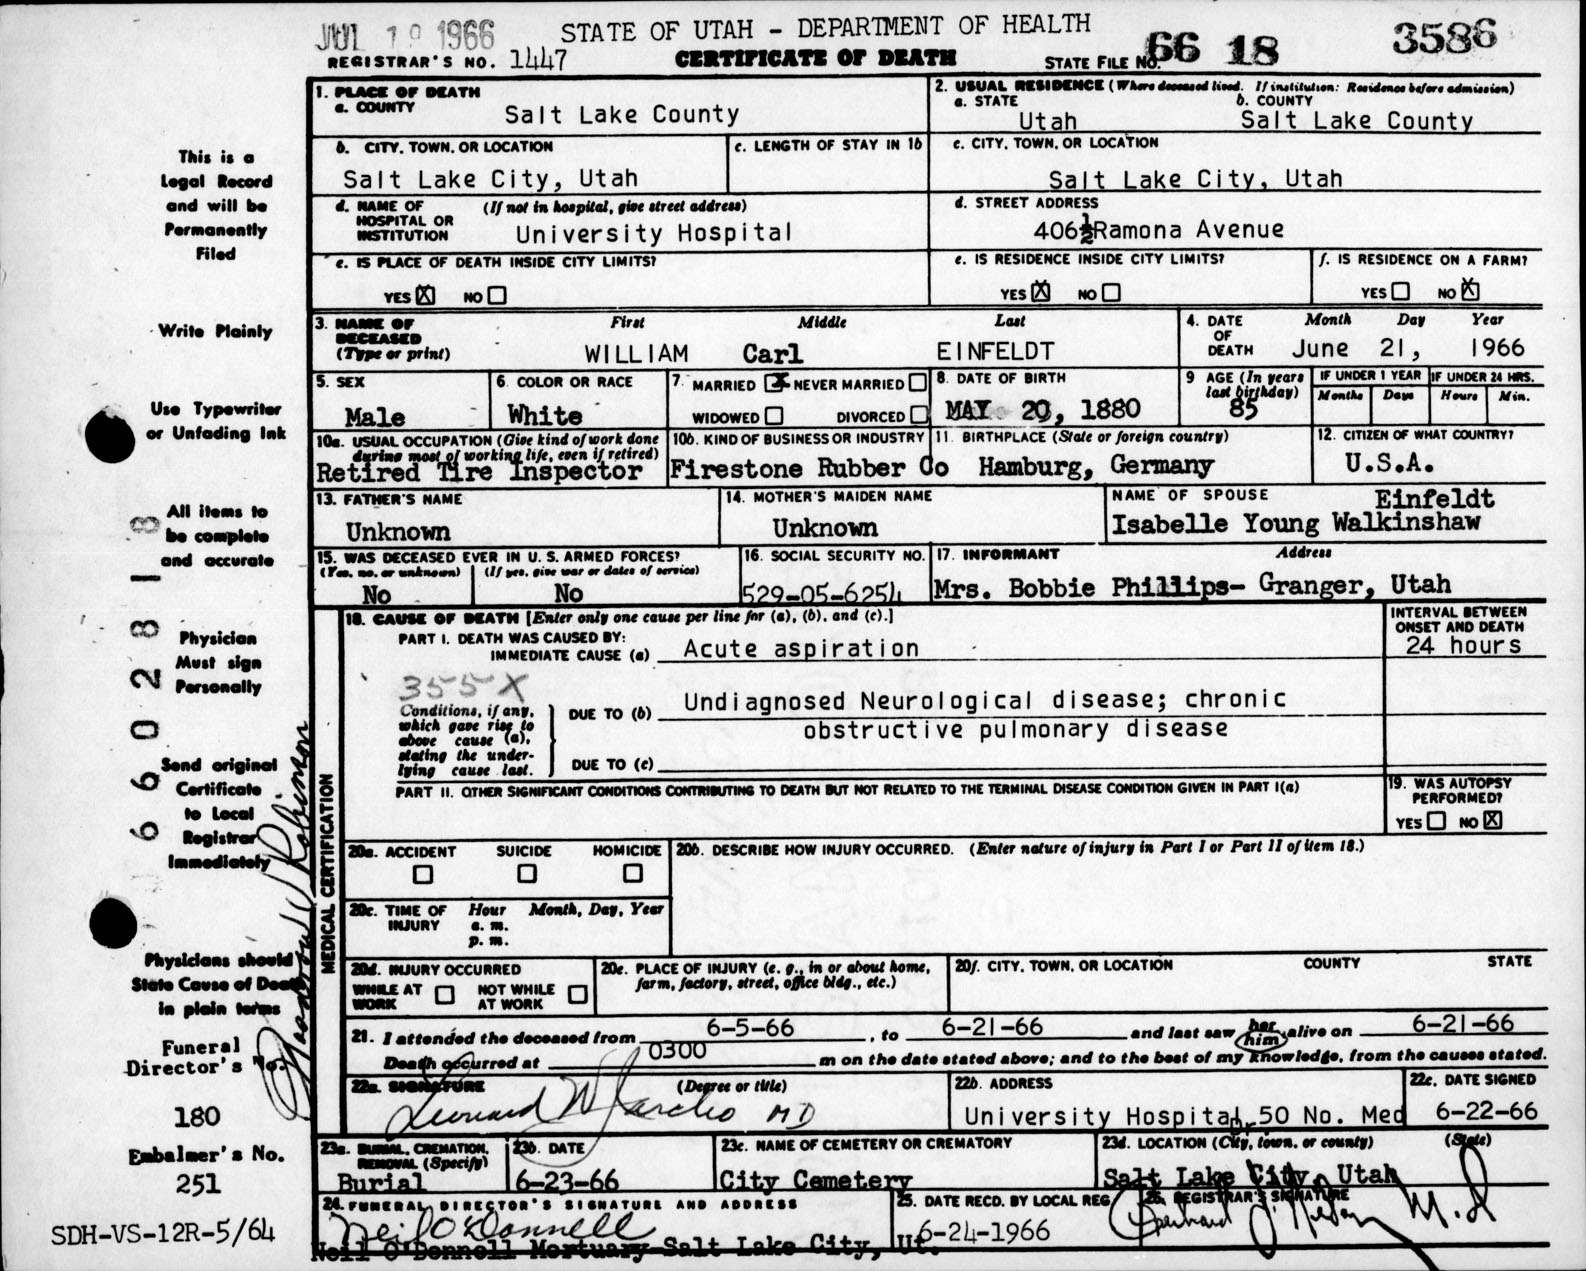 JUL 19 1966
STATE OF UTAH - DEPARTMENT OF HEALTH
3586
REGISTRAR'S NO. 1447
CERTIFICATE OF DEATH
STATE FILE NO. 66 18
1. PLACE OF DEATH
a. COUNTY
Salt Lake County
2. USUAL RESIDENCE (Where deceased lived. If institution: Residence before admission)
a. STATE
Utah
b. COUNTY
Salt Lake County
b. CITY, TOWN, OR LOCATION
Salt Lake City, Utah
c. LENGTH OF STAY IN 1b
c. CITY, TOWN, OR LOCATION
Salt Lake City, Utah
d. NAME OF HOSPITAL OR INSTITUTION (If not in hospital, give street address)
University Hospital
d. STREET ADDRESS
406½ Ramona Avenue
e. IS PLACE OF DEATH INSIDE CITY LIMITS?
YES X NO
e. IS RESIDENCE INSIDE CITY LIMITS?
YES X NO
f. IS RESIDENCE ON A FARM?
YES NO X
3. NAME OF DECEASED (Type or print)
First Middle Last
WILLIAM Carl EINFELDT
4. DATE OF DEATH
Month Day Year
June 21, 1966
5. SEX
Male
6. COLOR OR RACE
White
7. MARRIED X NEVER MARRIED
WIDOWED DIVORCED
8. DATE OF BIRTH
MAY 20, 1880
9 AGE (In years last birthday)
85
IF UNDER 1 YEAR
Months Days
IF UNDER 24 HRS.
Hours Min.
10a. USUAL OCCUPATION (Give kind of work done during most of working life, even if retired)
Retired Tire Inspector
10b. KIND OF BUSINESS OR INDUSTRY
Firestone Rubber Co
11. BIRTHPLACE (State or foreign country)
Hamburg, Germany
12. CITIZEN OF WHAT COUNTRY?
U.S.A.
13. FATHER'S NAME
Unknown
14. MOTHER'S MAIDEN NAME
Unknown
NAME OF SPOUSE
Einfeldt
Isabelle Young Walkinshaw
15. WAS DECEASED EVER IN U.S. ARMED FORCES?
(Yes, no, or unknown) (If yes, give war or dates of service)
No No
16. SOCIAL SECURITY NO.
529-05-6254
17. INFORMANT Address
Mrs. Bobbie Phillips- Granger, Utah
18. CAUSE OF DEATH [Enter only one cause per line for (a), (b), and (c).]
PART I. DEATH WAS CAUSED BY:
IMMEDIATE CAUSE (a) Acute aspiration
INTERVAL BETWEEN ONSET AND DEATH
24 hours
355X
Conditions, if any, which gave rise to above cause (a), stating the underlying cause last.
DUE TO (b) Undiagnosed Neurological disease; chronic
obstructive pulmonary disease
DUE TO (c)
PART II. OTHER SIGNIFICANT CONDITIONS CONTRIBUTING TO DEATH BUT NOT RELATED TO THE TERMINAL DISEASE CONDITION GIVEN IN PART I(a)
19. WAS AUTOPSY PERFORMED?
YES NO X
MEDICAL CERTIFICATION
20a. ACCIDENT SUICIDE HOMICIDE
20b. DESCRIBE HOW INJURY OCCURRED. (Enter nature of injury in Part I or Part II of item 18.)
20c. TIME OF INJURY
Hour Month, Day, Year
a. m.
p. m.
20d. INJURY OCCURRED
WHILE AT WORK NOT WHILE AT WORK
20e. PLACE OF INJURY (e. g., in or about home, farm, factory, street, office bldg., etc.)
20f. CITY, TOWN, OR LOCATION COUNTY STATE
21. I attended the deceased from 6-5-66, to 6-21-66 and last saw her him alive on 6-21-66
Death occurred at 0300 m on the date stated above; and to the best of my knowledge, from the causes stated.
22a. SIGNATURE (Degree or title)
Leonard W Jarcho MD
22b. ADDRESS
University Hospital, 50 No. Med Dr
22c. DATE SIGNED
6-22-66
23a. BURIAL, CREMATION, REMOVAL (Specify)
Burial
23b. DATE
6-23-66
23c. NAME OF CEMETERY OR CREMATORY
City Cemetery
23d. LOCATION (City, town, or county) (State)
Salt Lake City, Utah
24. FUNERAL DIRECTOR'S SIGNATURE AND ADDRESS
Neil O'Donnell
Neil O'Donnell Mortuary-Salt Lake City, Ut.
25. DATE RECD. BY LOCAL REG
6-24-1966
26. REGISTRAR'S SIGNATURE
M.D
This is a
Legal Record
and will be
Permanently
Filed
Write Plainly
Use Typewriter
or Unfading Ink
All items to
be complete
and accurate
Physician
Must sign
Personally
Send original
Certificate
to Local
Registrar
Immediately
Physicians should
State Cause of Death
in plain terms
Funeral
Director's No.
180
Embalmer's No.
251
SDH-VS-12R-5/64
6 6 0 2 8 1 8
Robinson